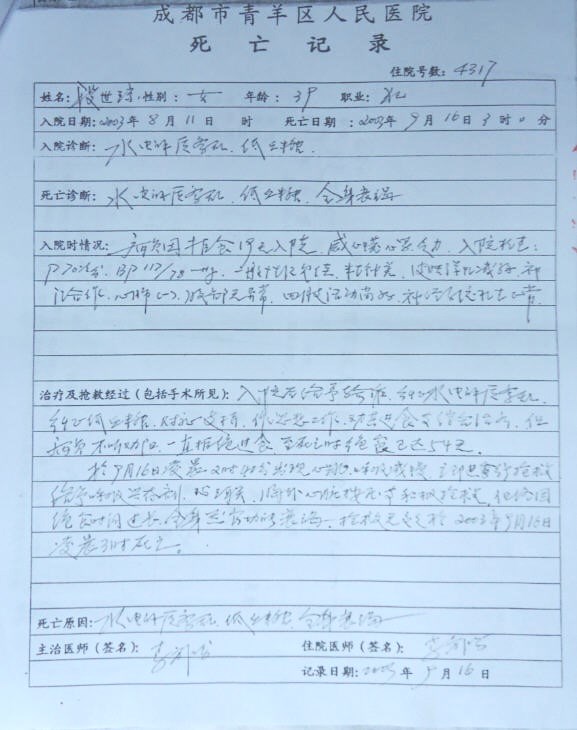 成都市青羊区人民医院
死亡记录
住院号数: 4317
姓名: 段世琼 性别: 女 年龄: 39 职业:
入院日期: 2003年8月11日 时 死亡日期: 2003年9月16日3时0分
入院诊断: 水电解质紊乱. 低血糖.
死亡诊断: 水电解质紊乱. 低血糖. 全身衰竭
入院时情况: 病员因 19天入院. 感心慌心累乏力. 入院查:
P 70次/分. BP 112/78mmHg. 一般情况 皮肤弹性减弱. 神
清合作. 心肺(-). 腹部无异常. 四肢活动尚好. 神经系统 正常.
治疗及抢救经过(包括手术所见): 入院后给予输液. 纠正水电解质紊乱.
纠正低血糖. 对症支持. 作思想工作. 劝其进食 治疗. 但
病员不听劝阻. 一直拒绝进食 至死亡时绝食已达54天.
于9月16日凌晨2时40分发现心跳. 呼吸减慢. 立即 抢救
给予呼吸兴奋剂. 胸外心脏按摩等积极抢救. 但终因
绝食时间过长. 全身 功能衰竭. 抢救无效于2003年9月16日
凌晨3时死亡.
死亡原因: 水电解质紊乱. 低血糖. 全身衰竭
主治医师(签名): 住院医师(签名):
记录日期: 2003年9月16日